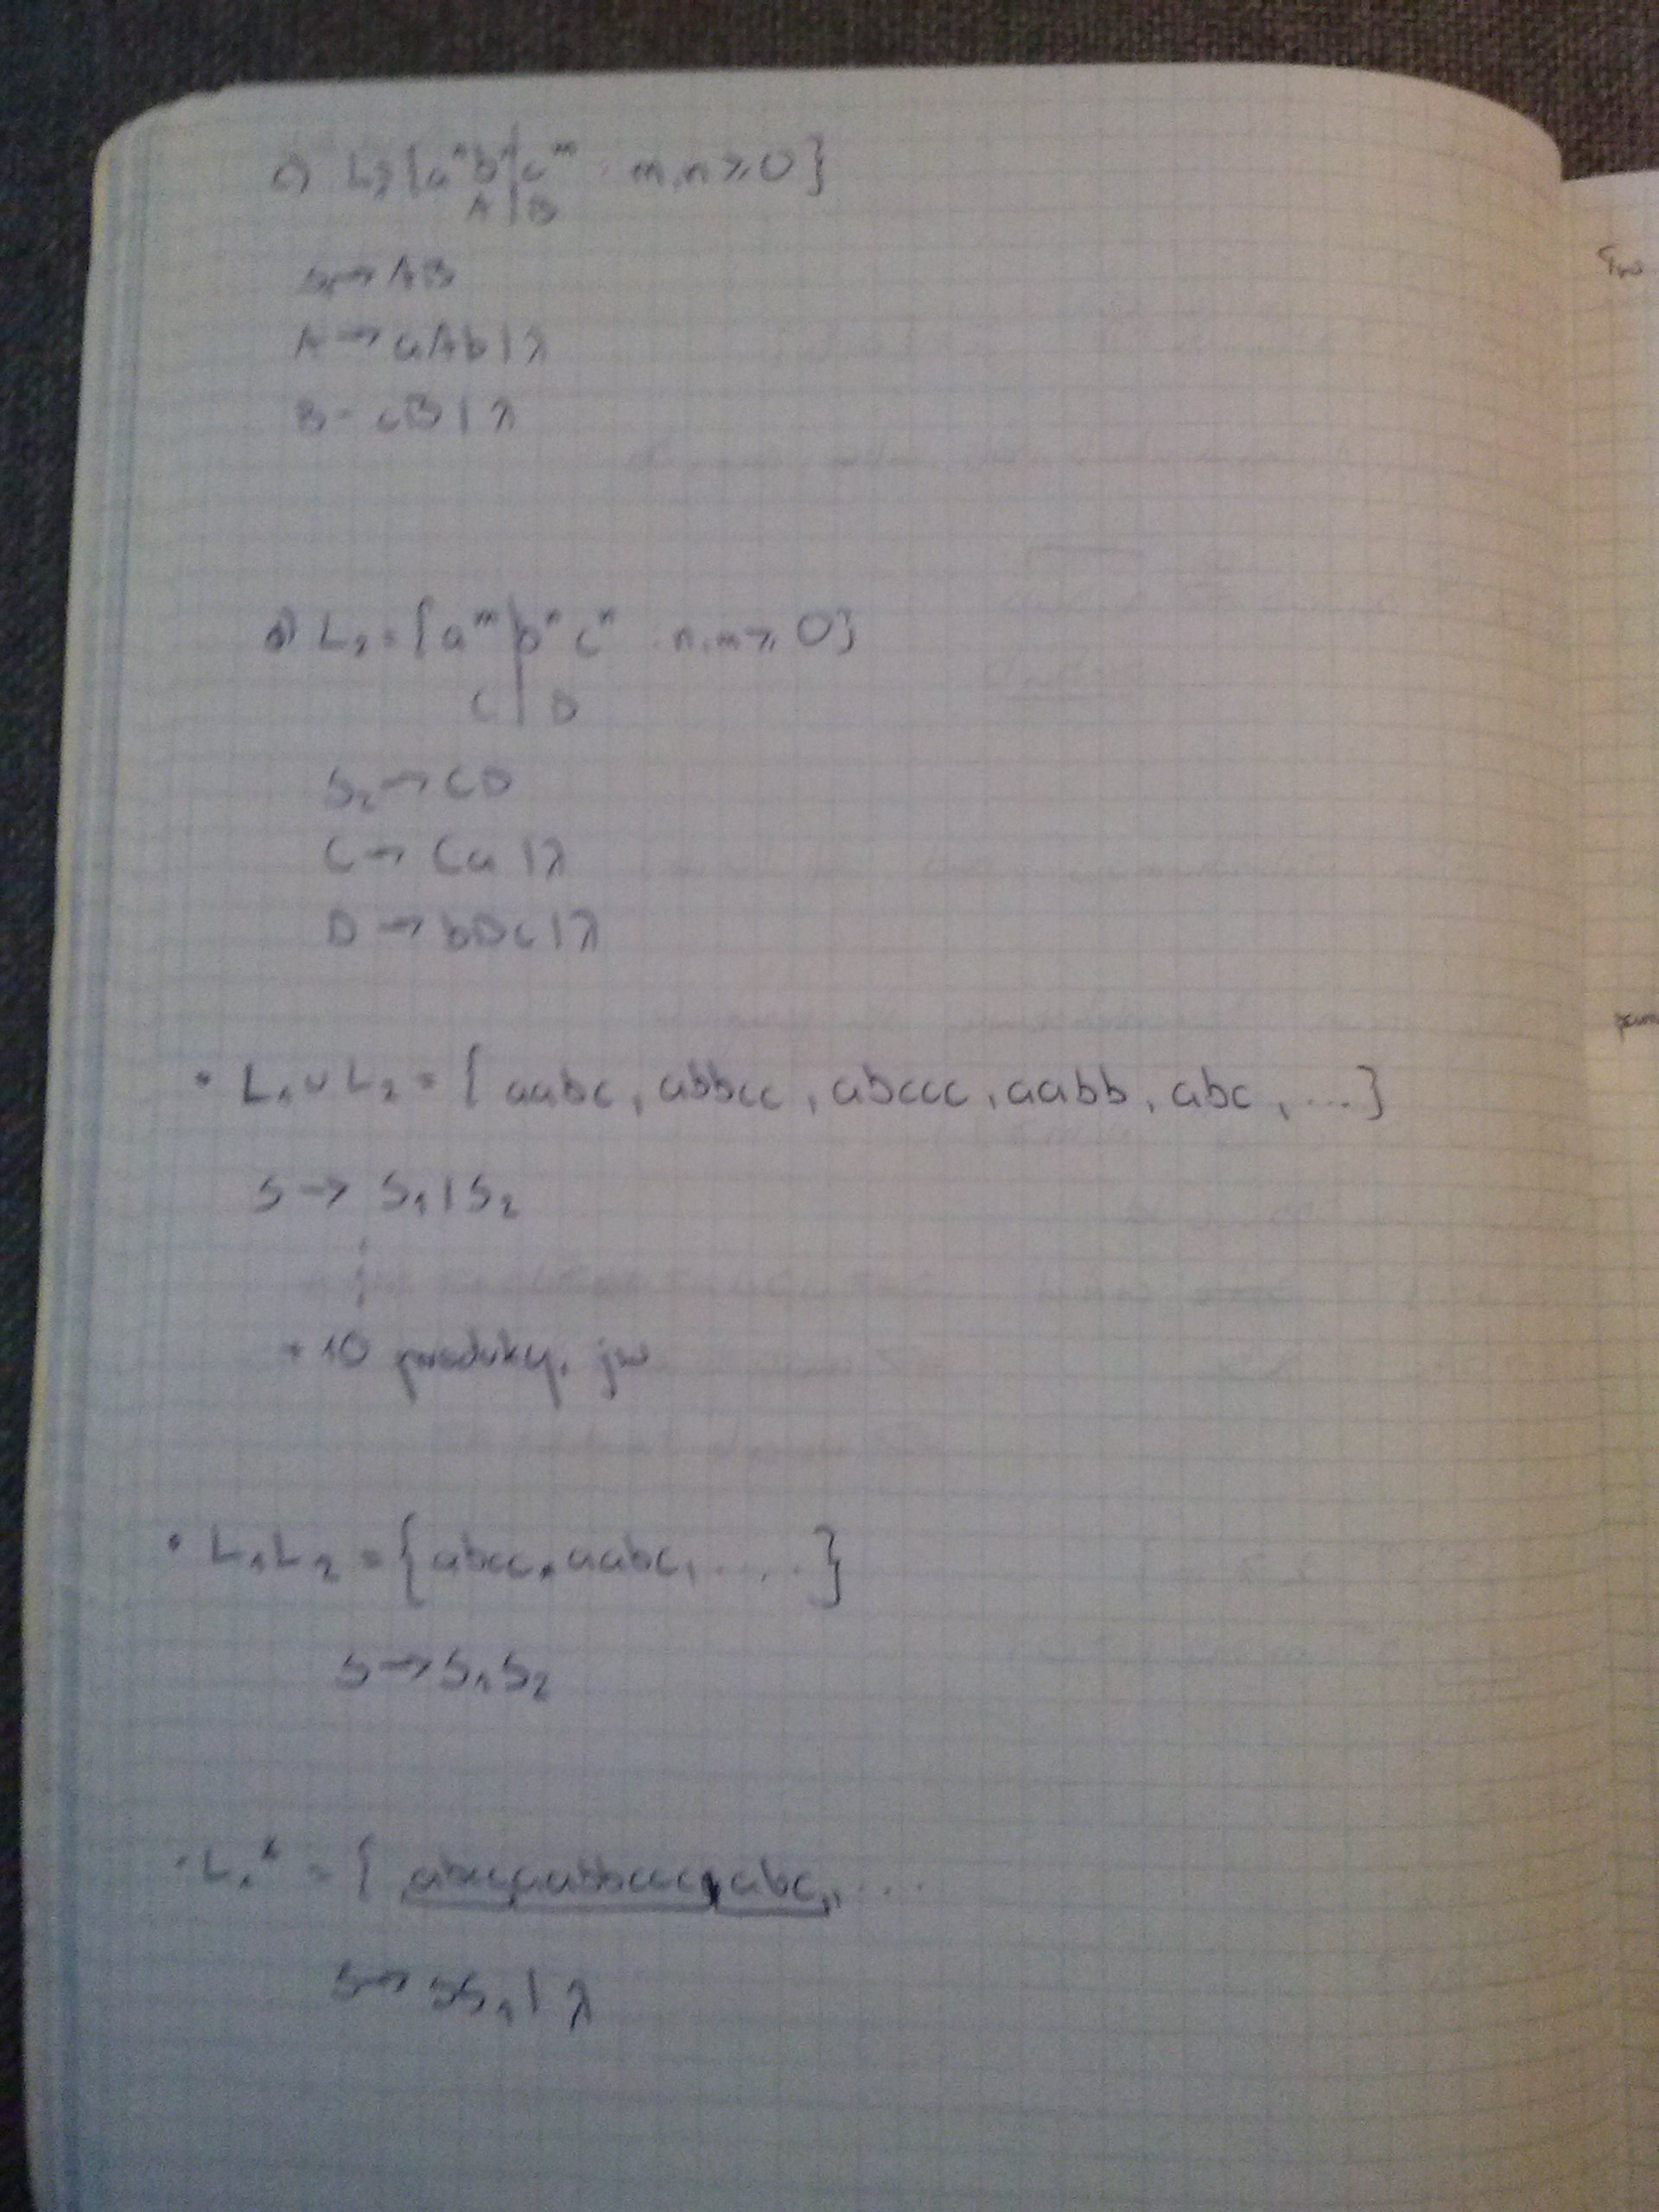 c) L₁={aⁿbⁿ|cᵐ : m,n ≥ 0}
A | B
S₁→AB
A→aAb|λ
B-cB|λ
d) L₂={aᵐ|bⁿcⁿ : n,m ≥ 0}
C | D
S₂→CD
C→Ca|λ
D→bDc|λ
• L₁∪L₂={aabc, abbcc, abccc, aabb, abc, ...}
S→S₁|S₂
+10 produkcj. jw
• L₁L₂={abcc, aabc, .....}
S→S₁S₂
· L₁* = { abc, ...
S→SS₁|λ